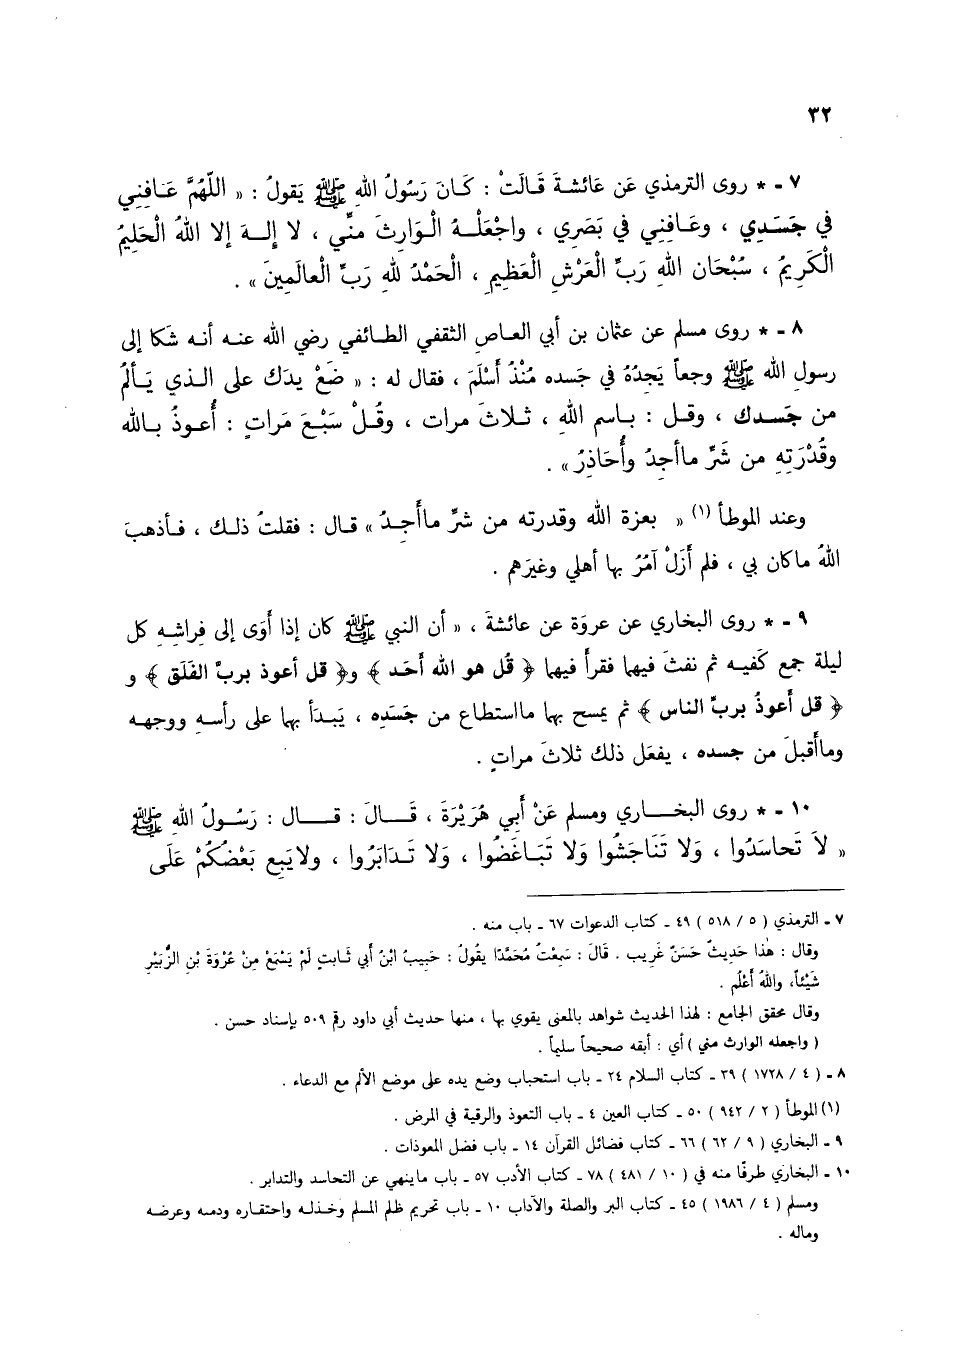 ٣٢
٧ ـ * روى الترمذي عَن عَائشةَ قَالَتْ : كَانَ رَسُولُ اللهِ ﷺ يَقولُ : « اللّهُمَّ عَافِنِي
في جَسَدِي ، وعَافِنِي في بَصَرِي ، واجْعَلْهُ الْوَارِثَ منِّي ، لا إِلهَ إلا اللهُ الْحَلِيمُ
الْكَرِيمُ ، سُبْحَان اللهِ رَبِّ الْعَرْشِ الْعَظِيمِ ، الْحَمْدُ للهِ رَبِّ الْعالَمِينَ » .
٨ ـ * روى مسلم عن عثمان بن أبي العاصِ الثقفي الطائفي رضي الله عنه أنه شَكا إلى
رسولِ الله ﷺ وجعاً يَجِدُهُ في جَسده مُنْذُ أَسْلَمَ ، فقال له : « ضَعْ يدَك على الذي يَألمُ
من جَسدك ، وقل : باسم اللهِ ، ثلاثَ مرات ، وقُلْ سَبْعَ مَرات : أَعوذُ بالله
وقُدْرَتِهِ من شَرِّ ماأجِدُ وأُحَاذِرُ » .
وعند الموطأ (١) « بعزة الله وقدرته من شرِّ ماأَجِدُ » قال : فقلتُ ذلك ، فأذهبَ
اللهُ ماكان بي ، فلم أَزَلْ آمُرُ بها أهلي وغيرَهم .
٩ ـ * روى البخاري عن عروة عن عائشةَ ، « أن النبي ﷺ كان إذا أَوَى إلى فِراشِهِ كل
ليلة جمع كَفيه ثم نفثَ فيها فقرأ فيها ﴿ قُل هو الله أَحَد ﴾ و﴿ قل أعوذ بربِّ الفَلَق ﴾ و
﴿ قل أَعوذُ بربِّ الناس ﴾ ثم يمسح بها مااستطاع من جَسَدِه ، يَبدَأ بها على رأسهِ ووجهه
وماأَقبلَ من جسده ، يفعَل ذلك ثلاثَ مراتٍ .
١٠ ـ * روى البخاري ومسلم عَنْ أَبِي هُرَيْرَةَ ، قَالَ : قال : رَسُولُ اللهِ ﷺ
« لاَ تَحاسَدُوا ، وَلا تَنَاجَشُوا وَلا تَبَاغَضُوا ، وَلا تَدابَرُوا ، ولايَبِع بَعْضُكُمْ عَلَى
٧ ـ الترمذي ( ٥ / ٥١٨ ) ٤٩ ـ كتاب الدعوات ٦٧ ـ باب منه .
وقال : هٰذا حَديثٌ حَسَنٌ غَرِيب . قَالَ : سَمِعْتُ مُحَمَّدًا يقُولُ : حَبِيبُ ابْنُ أبي ثَابتٍ لَمْ يَسْمَعْ مِنْ عُرْوَةَ بْنِ الزُّبَيْرِ
شَيْئاً، واللهُ أَعْلَم .
وقال محقق الجامع : لهذا الحديث شواهد بالمعنى يقوي بها ، منها حديث أبي داود رقم ٥٠٩ بإسناد حسن .
( واجعله الوارث مني ) أي : أبقه صحيحاً سليماً .
٨ ـ ( ٤ / ١٧٢٨ ) ٣٩ ـ كتاب السلام ٢٤ ـ باب استحباب وضع يده على موضع الألم مع الدعاء .
(١) الموطأ ( ٢ / ٩٤٢ ) ٥٠ ـ كتاب العين ٤ ـ باب التعوذ والرقية في المرض .
٩ ـ البخاري ( ٩ / ٦٢ ) ٦٦ ـ كتاب فضائل القرآن ١٤ ـ باب فضل المعوذات .
١٠ ـ البخاري طرفًا منه في ( ١٠ / ٤٨١ ) ٧٨ ـ كتاب الأدب ٥٧ ـ باب ماينهي عن التحاسد والتدابر .
ومسلم ( ٤ / ١٩٨٦ ) ٤٥ ـ كتاب البر والصلة والآداب ١٠ ـ باب تحريم ظلم المسلم وخذله واحتقاره ودمه وعرضه
وماله .